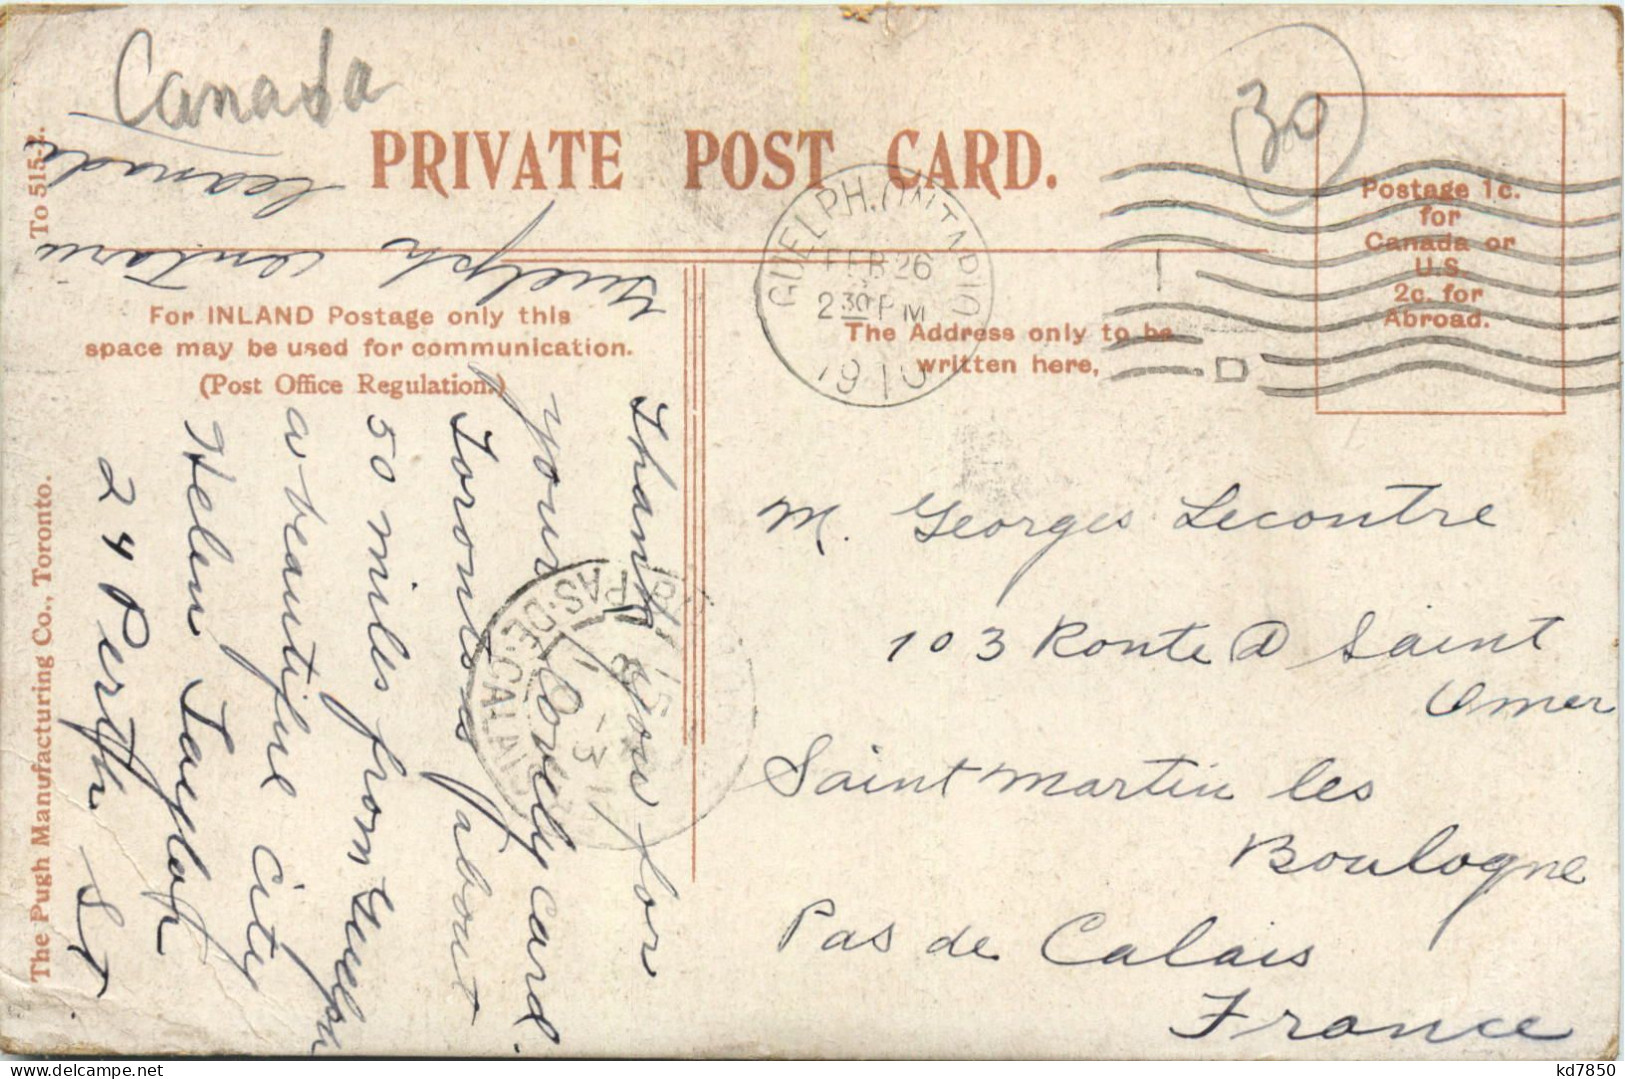 Canada
30
PRIVATE POST CARD.
Postage 1c.
for
Canada or
U.S.
2c. for
Abroad.
GUELPH. ONTARIO
FEB 26
2 30 PM
1910
For INLAND Postage only this
space may be used for communication.
(Post Office Regulation.)
The Address only to be
written here,
To 515-2.
The Pugh Manufacturing Co., Toronto.
Thank you for
your lovely card.
Toronto is about
50 miles from Guelph
a beautiful city
Helen Taylor
24 Perth ST
Guelph Ontario
Canada
PAS-DE-CALAIS
M. Georges Lecontre
103 Route D Saint
Omer
Saint Martin les
Boulogne
Pas de Calais
France
kd7850